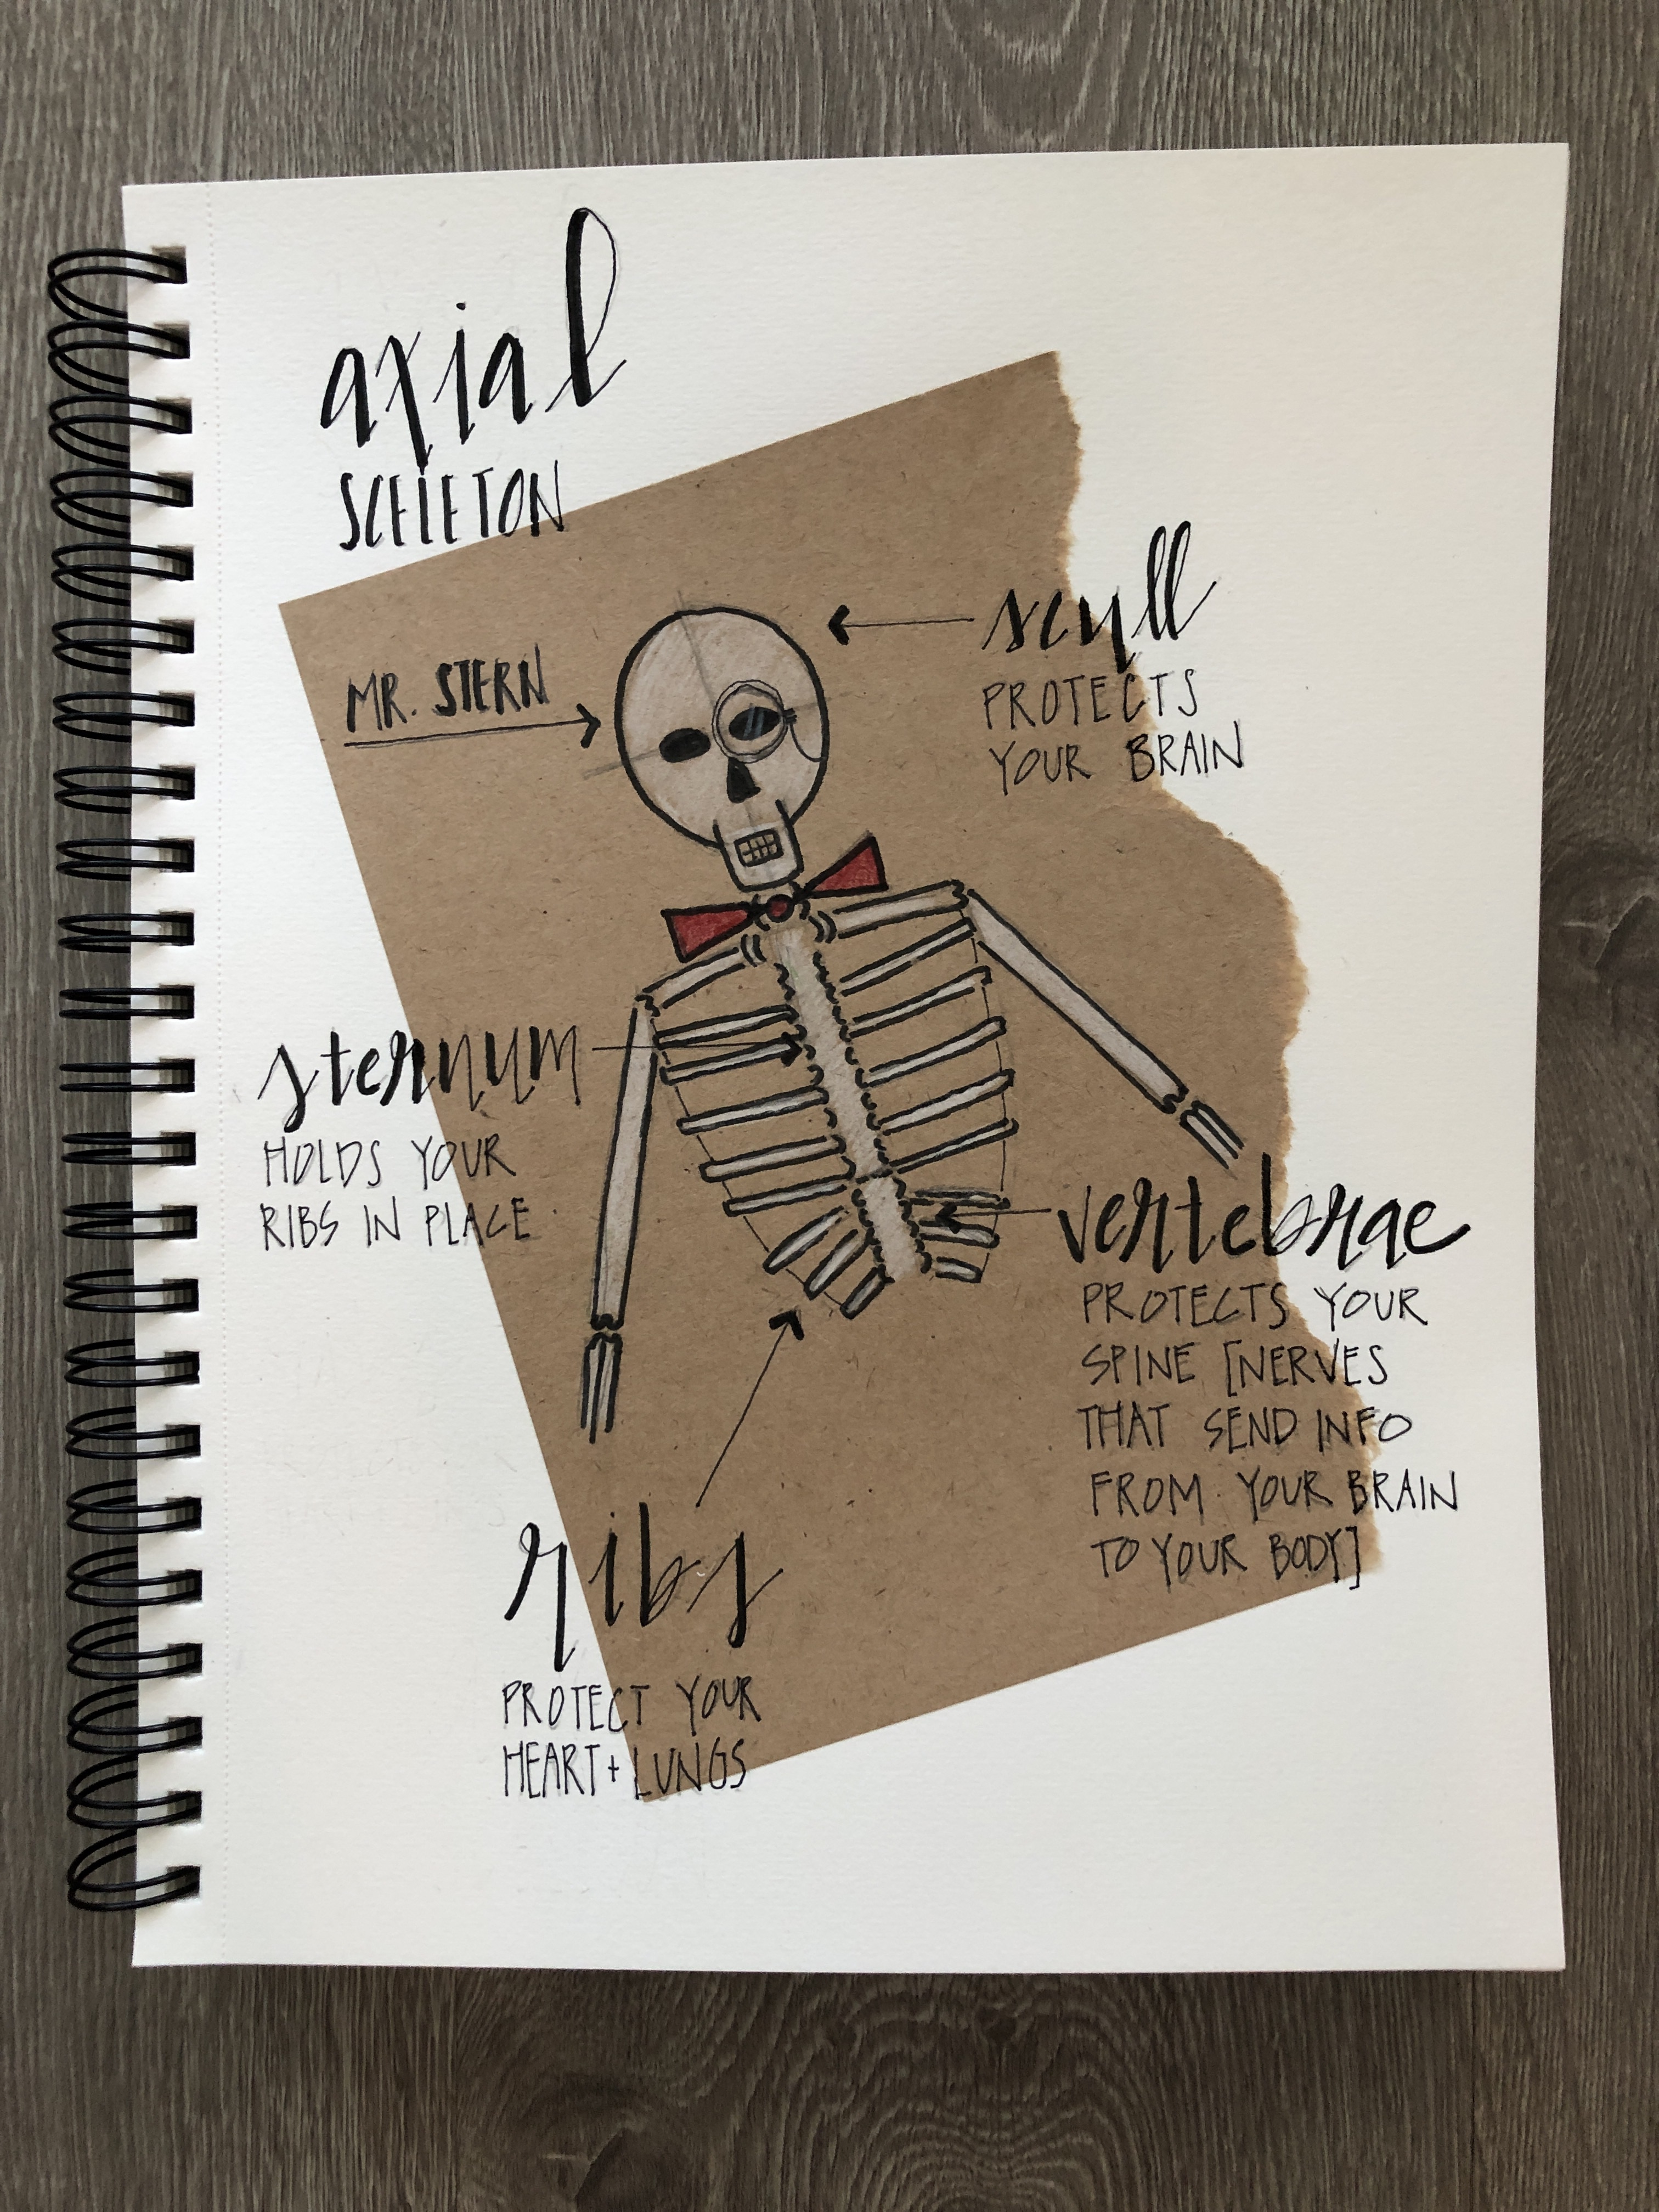 axial
SCELETON
MR. STERN
scull
PROTECTS
YOUR BRAIN
sternum
HOLDS YOUR
RIBS IN PLACE
vertebrae
PROTECTS YOUR
SPINE [NERVES
THAT SEND INFO
FROM YOUR BRAIN
TO YOUR BODY]
ribs
PROTECT YOUR
HEART + LUNGS